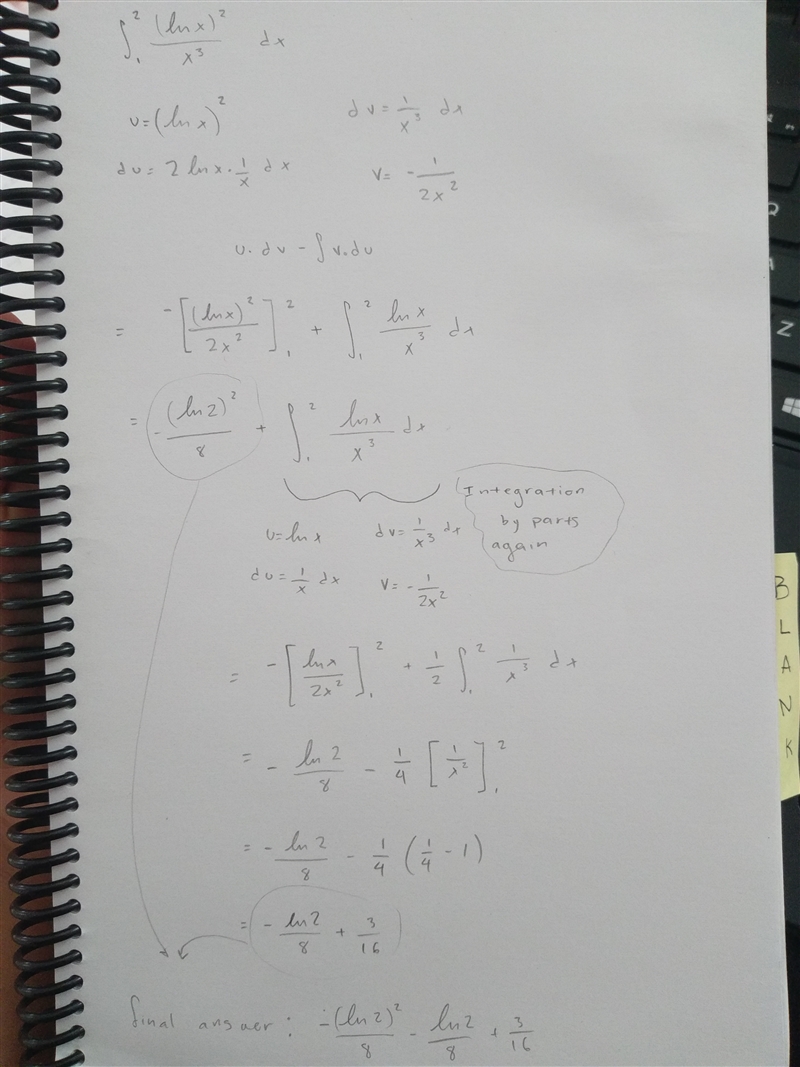 ∫₁² (ln x)² / x³ dx
u = (ln x)²    dv = 1/x³ dx
du = 2 ln x · 1/x dx    v = - 1/2x²
u · dv - ∫ v · du
= - [(ln x)² / 2x²]₁² + ∫₁² ln x / x³ dx
= - (ln 2)² / 8 + ∫₁² ln x / x³ dx
Integration
by parts
again
u = ln x    dv = 1/x³ dx
du = 1/x dx    v = - 1/2x²
= - [ln x / 2x²]₁² + 1/2 ∫₁² 1/x³ dx
= - ln 2 / 8 - 1/4 [1/x²]₁²
= - ln 2 / 8 - 1/4 (1/4 - 1)
= - ln 2 / 8 + 3/16
final answer : - (ln 2)² / 8 - ln 2 / 8 + 3/16
B
L
A
N
K
Z